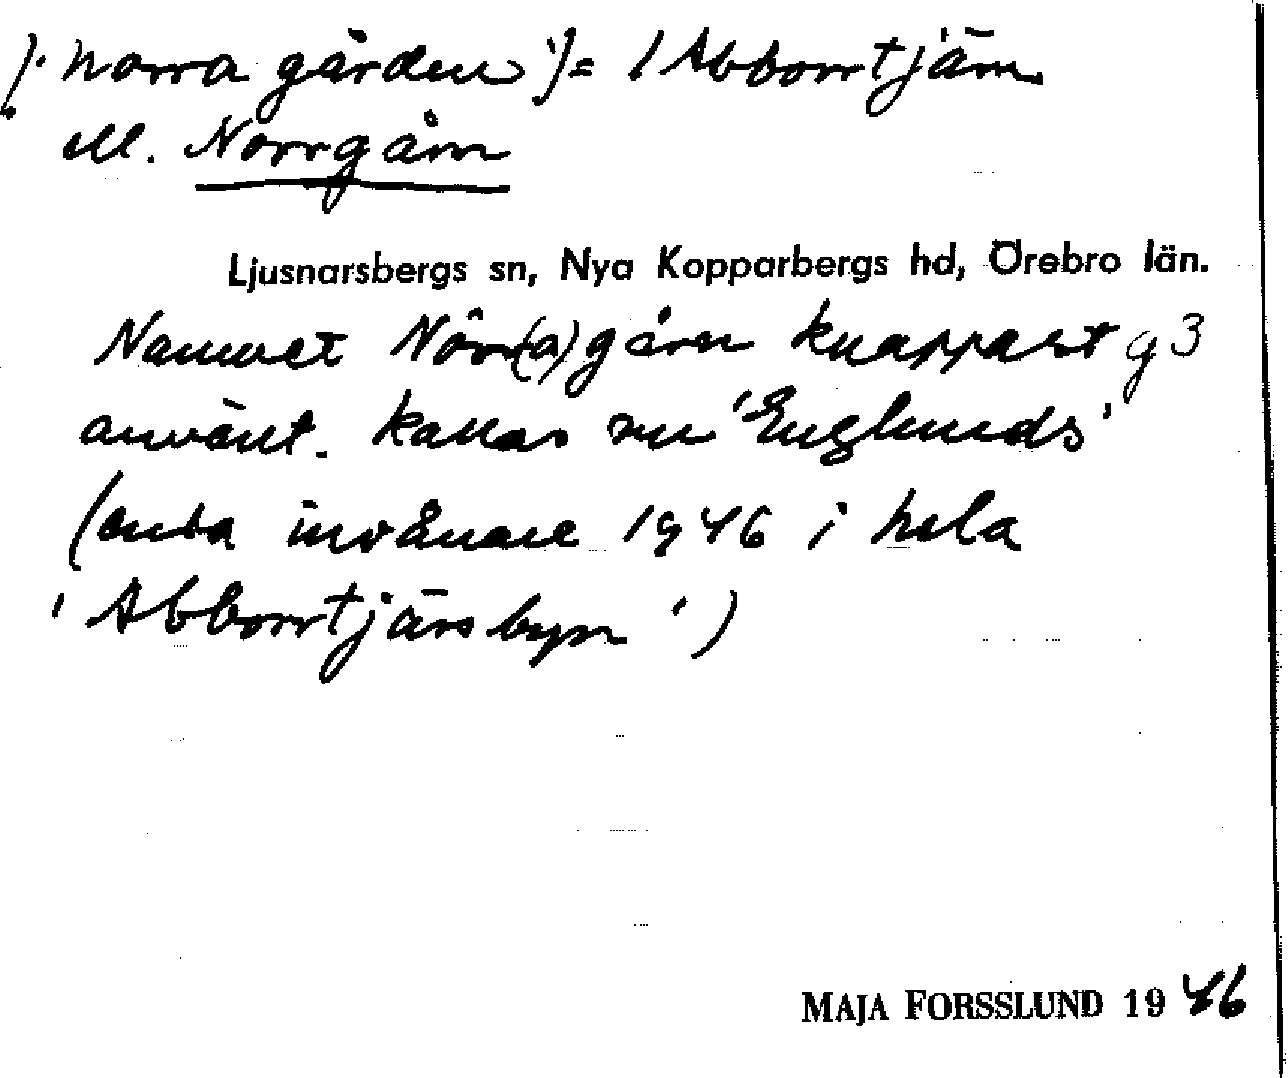 (' norra gården ') = / Abborrtjärn
ell. Norrgårn
Ljusnarsbergs sn, Nya Kopparbergs hd, Örebro län.
Namnet Nörr(a)gårn knappast g3
använt. Kallas nu 'Englunds'
(enda invånare 1946 i hela
'Abborrtjärsbyn')
MAJA FORSSLUND 1946